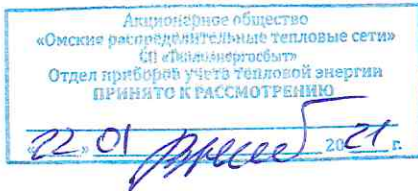 Акционерное общество
«Омские распределительные тепловые сети»
СП «Теплоэнергосбыт»
Отдел приборов учета тепловой энергии
ПРИНЯТО К РАССМОТРЕНИЮ
«22» 01 2021 г.